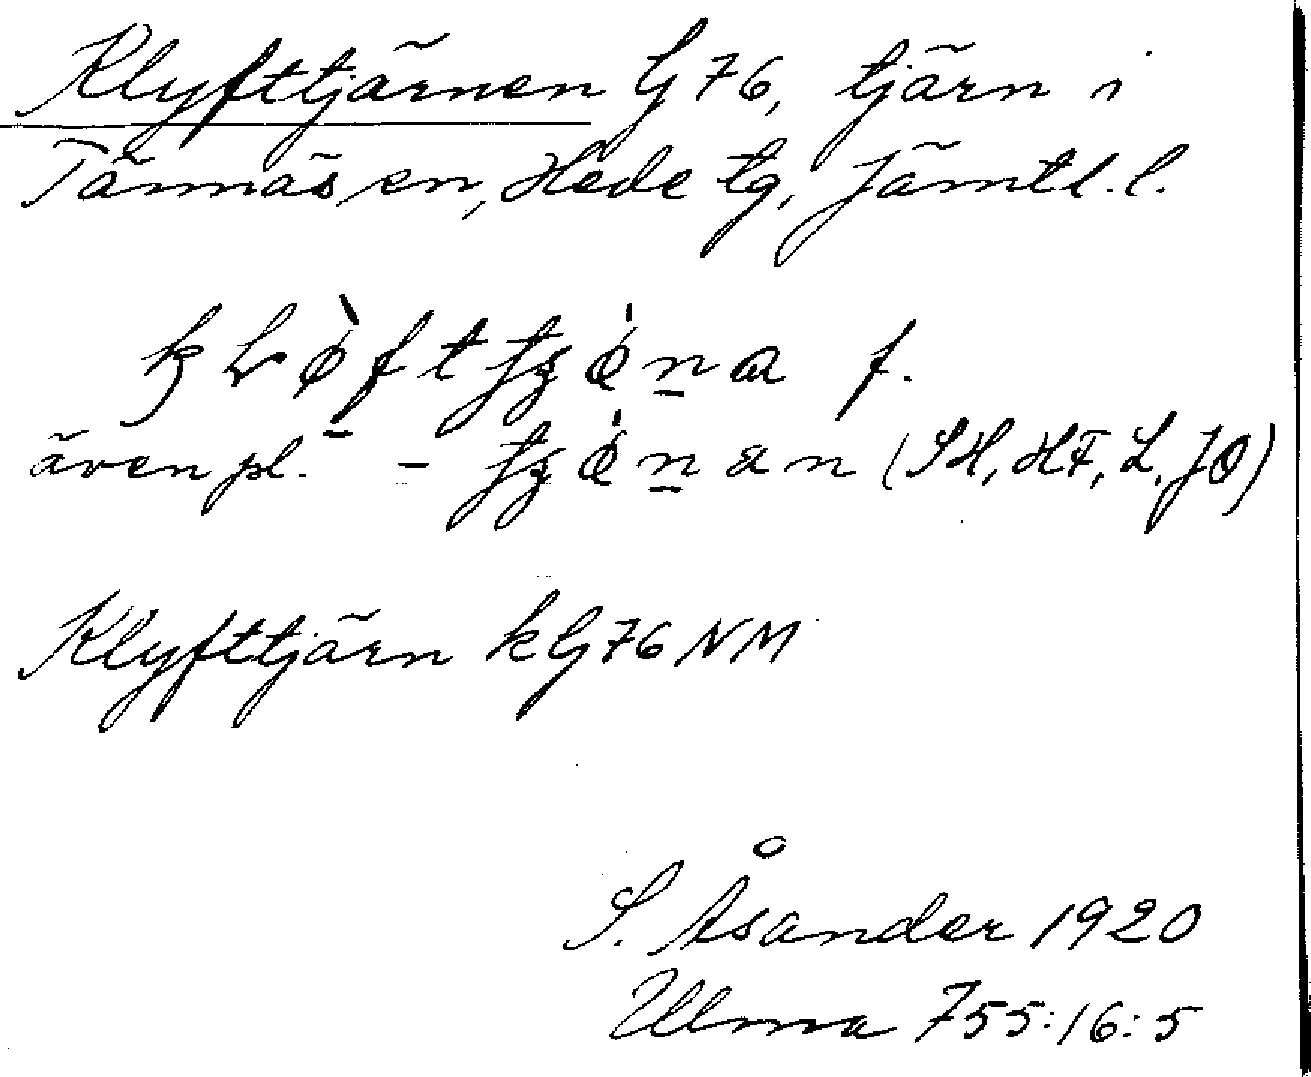 Klyfttjärnen G 76, tjärn i
Tännäs sn, Hede tg, Jämtl. l.
f.
även pl. (SH, HF, L, JO)
Klyfttjärn k G 76 NM
S. Åsander 1920
Ulma 755:16:5